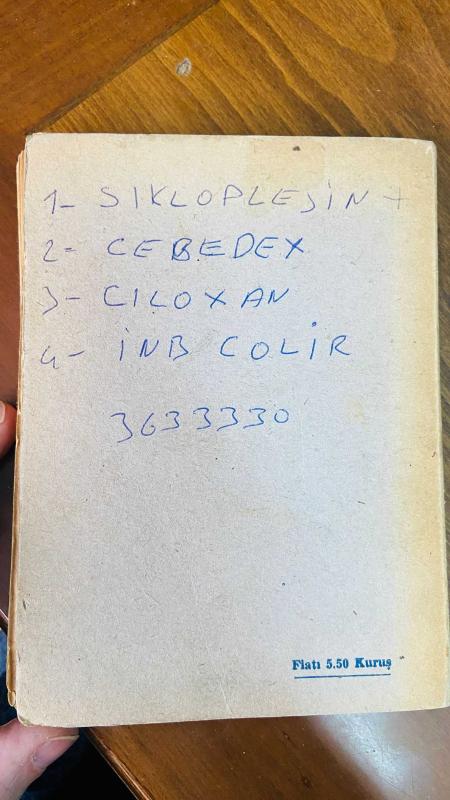 1- SIKLOPLEJİN +
2- CEBEDEX
3- CILOXAN
4- İNB COLİR
3633330
Fiatı 5.50 Kuruş